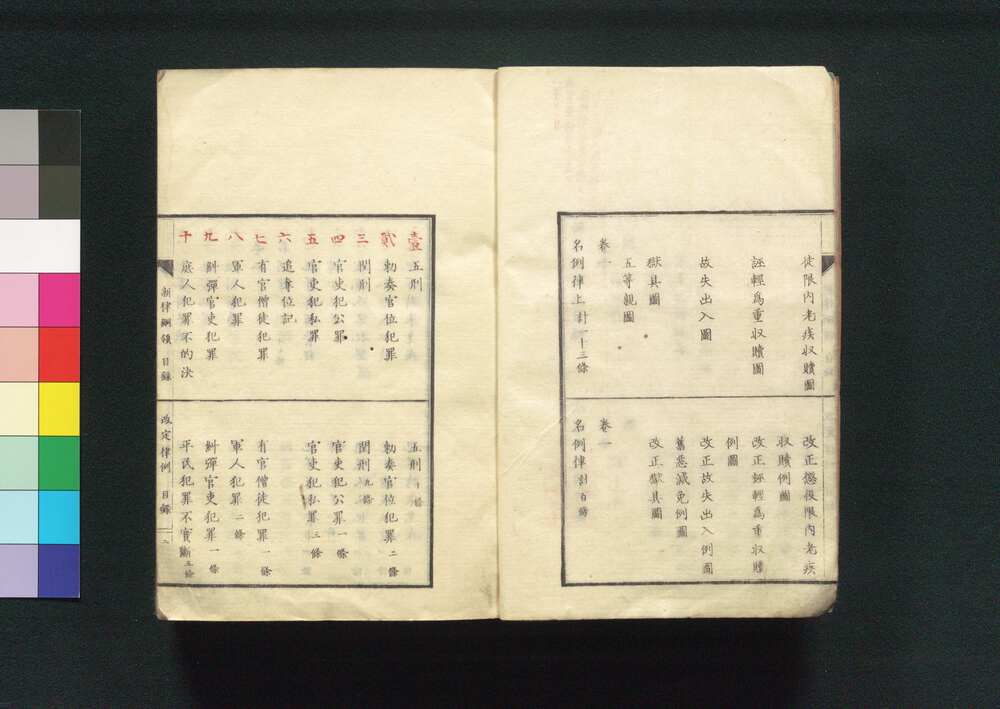 徒限内老疾収贖圖
誣輕爲重収贖圖
故失出入圖
獄具圖
五等親圖
卷一
名例律上計一十三條
改正懲役限内老疾
収贖例圖
改正誣輕爲重収贖
例圖
改正故失出入例圖
舊惡減免例圖
改正獄具圖
卷一
名例律計百條
壹 五刑
貳 勅奏官位犯罪
三 閏刑
四 官吏犯公罪
五 官吏犯私罪
六 追奪位記
七 有官僧徒犯罪
八 軍人犯罪
九 糾彈官吏犯罪
十 庶人犯罪不的決
新律綱領 目錄
五刑 條
勅奏官位犯罪 二條
閏刑 九條
官吏犯公罪 一條
官吏犯私罪 三條
有官僧徒犯罪 一條
軍人犯罪 二條
糾彈官吏犯罪 一條
平民犯罪不實斷 五條
改定律例 目錄 二